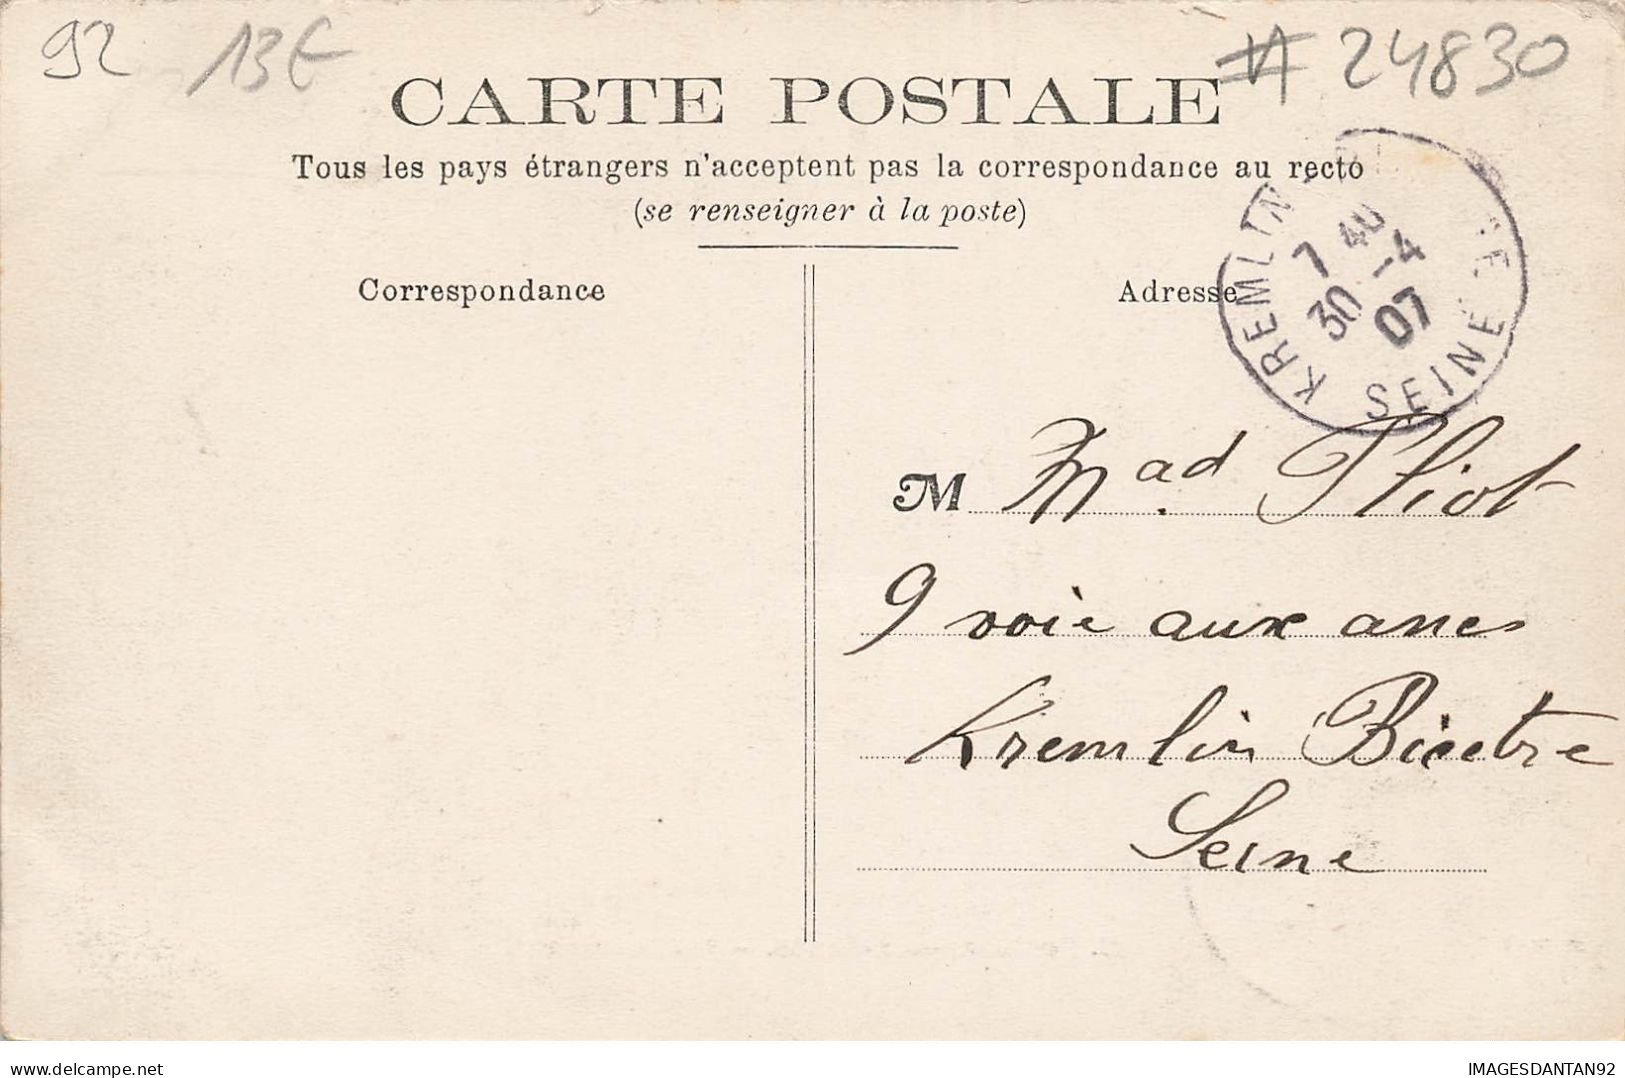 92 13€ # 24830
CARTE POSTALE
Tous les pays étrangers n'acceptent pas la correspondance au recto
(se renseigner à la poste)
Correspondance
Adresse
KREMLIN
7 40
30 -4
07
SEINE
M Mad. Pliot
9 voie aux anes
Kremlin Bicetre
Seine
delcampe.net
IMAGESDANTAN92